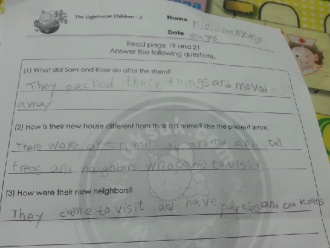 The Lighthouse Children - 2
Name
Date
Read page 19 and 21
Answer the following questions.
(1) What did Sam and Rose do after the storm?
They packed their things and moved
away
(2) How is their new house different from their old home? the present tense.
There were
trees and neighbors who came to visit
(3) How were their new neighbors?
They came to visit and have parties and cookouts